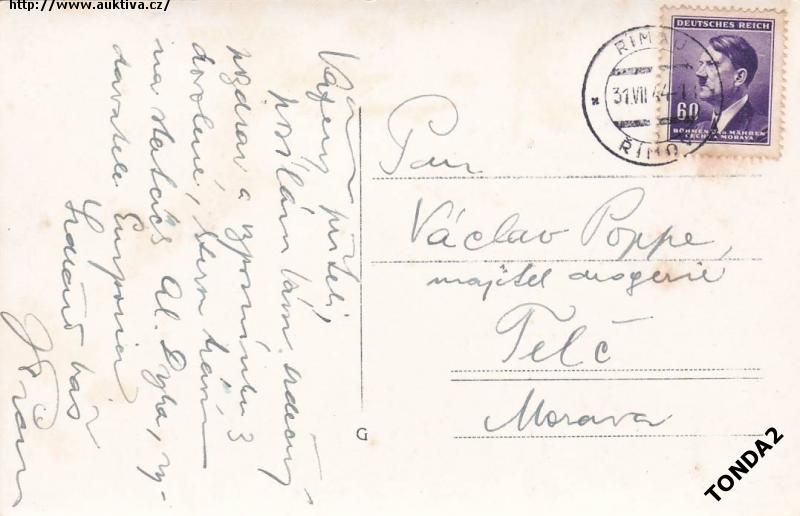 http://www.auktiva.cz/
DEUTSCHES REICH
60
BÖHMEN UND MÄHREN
ČECHY A MORAVA
RIMAU
31.VII.44
ŘÍMOV
Pan
Václav Poppe,
majitel drogerie
Telč
Morava
Vážený příteli,
posílám Vám srdečný
pozdrav a vzpomínku z
dovolené, kterou trávím
na statečku Al. Dyka, vy-
davatele Eurposia
Srdečně Váš
G
TONDA2